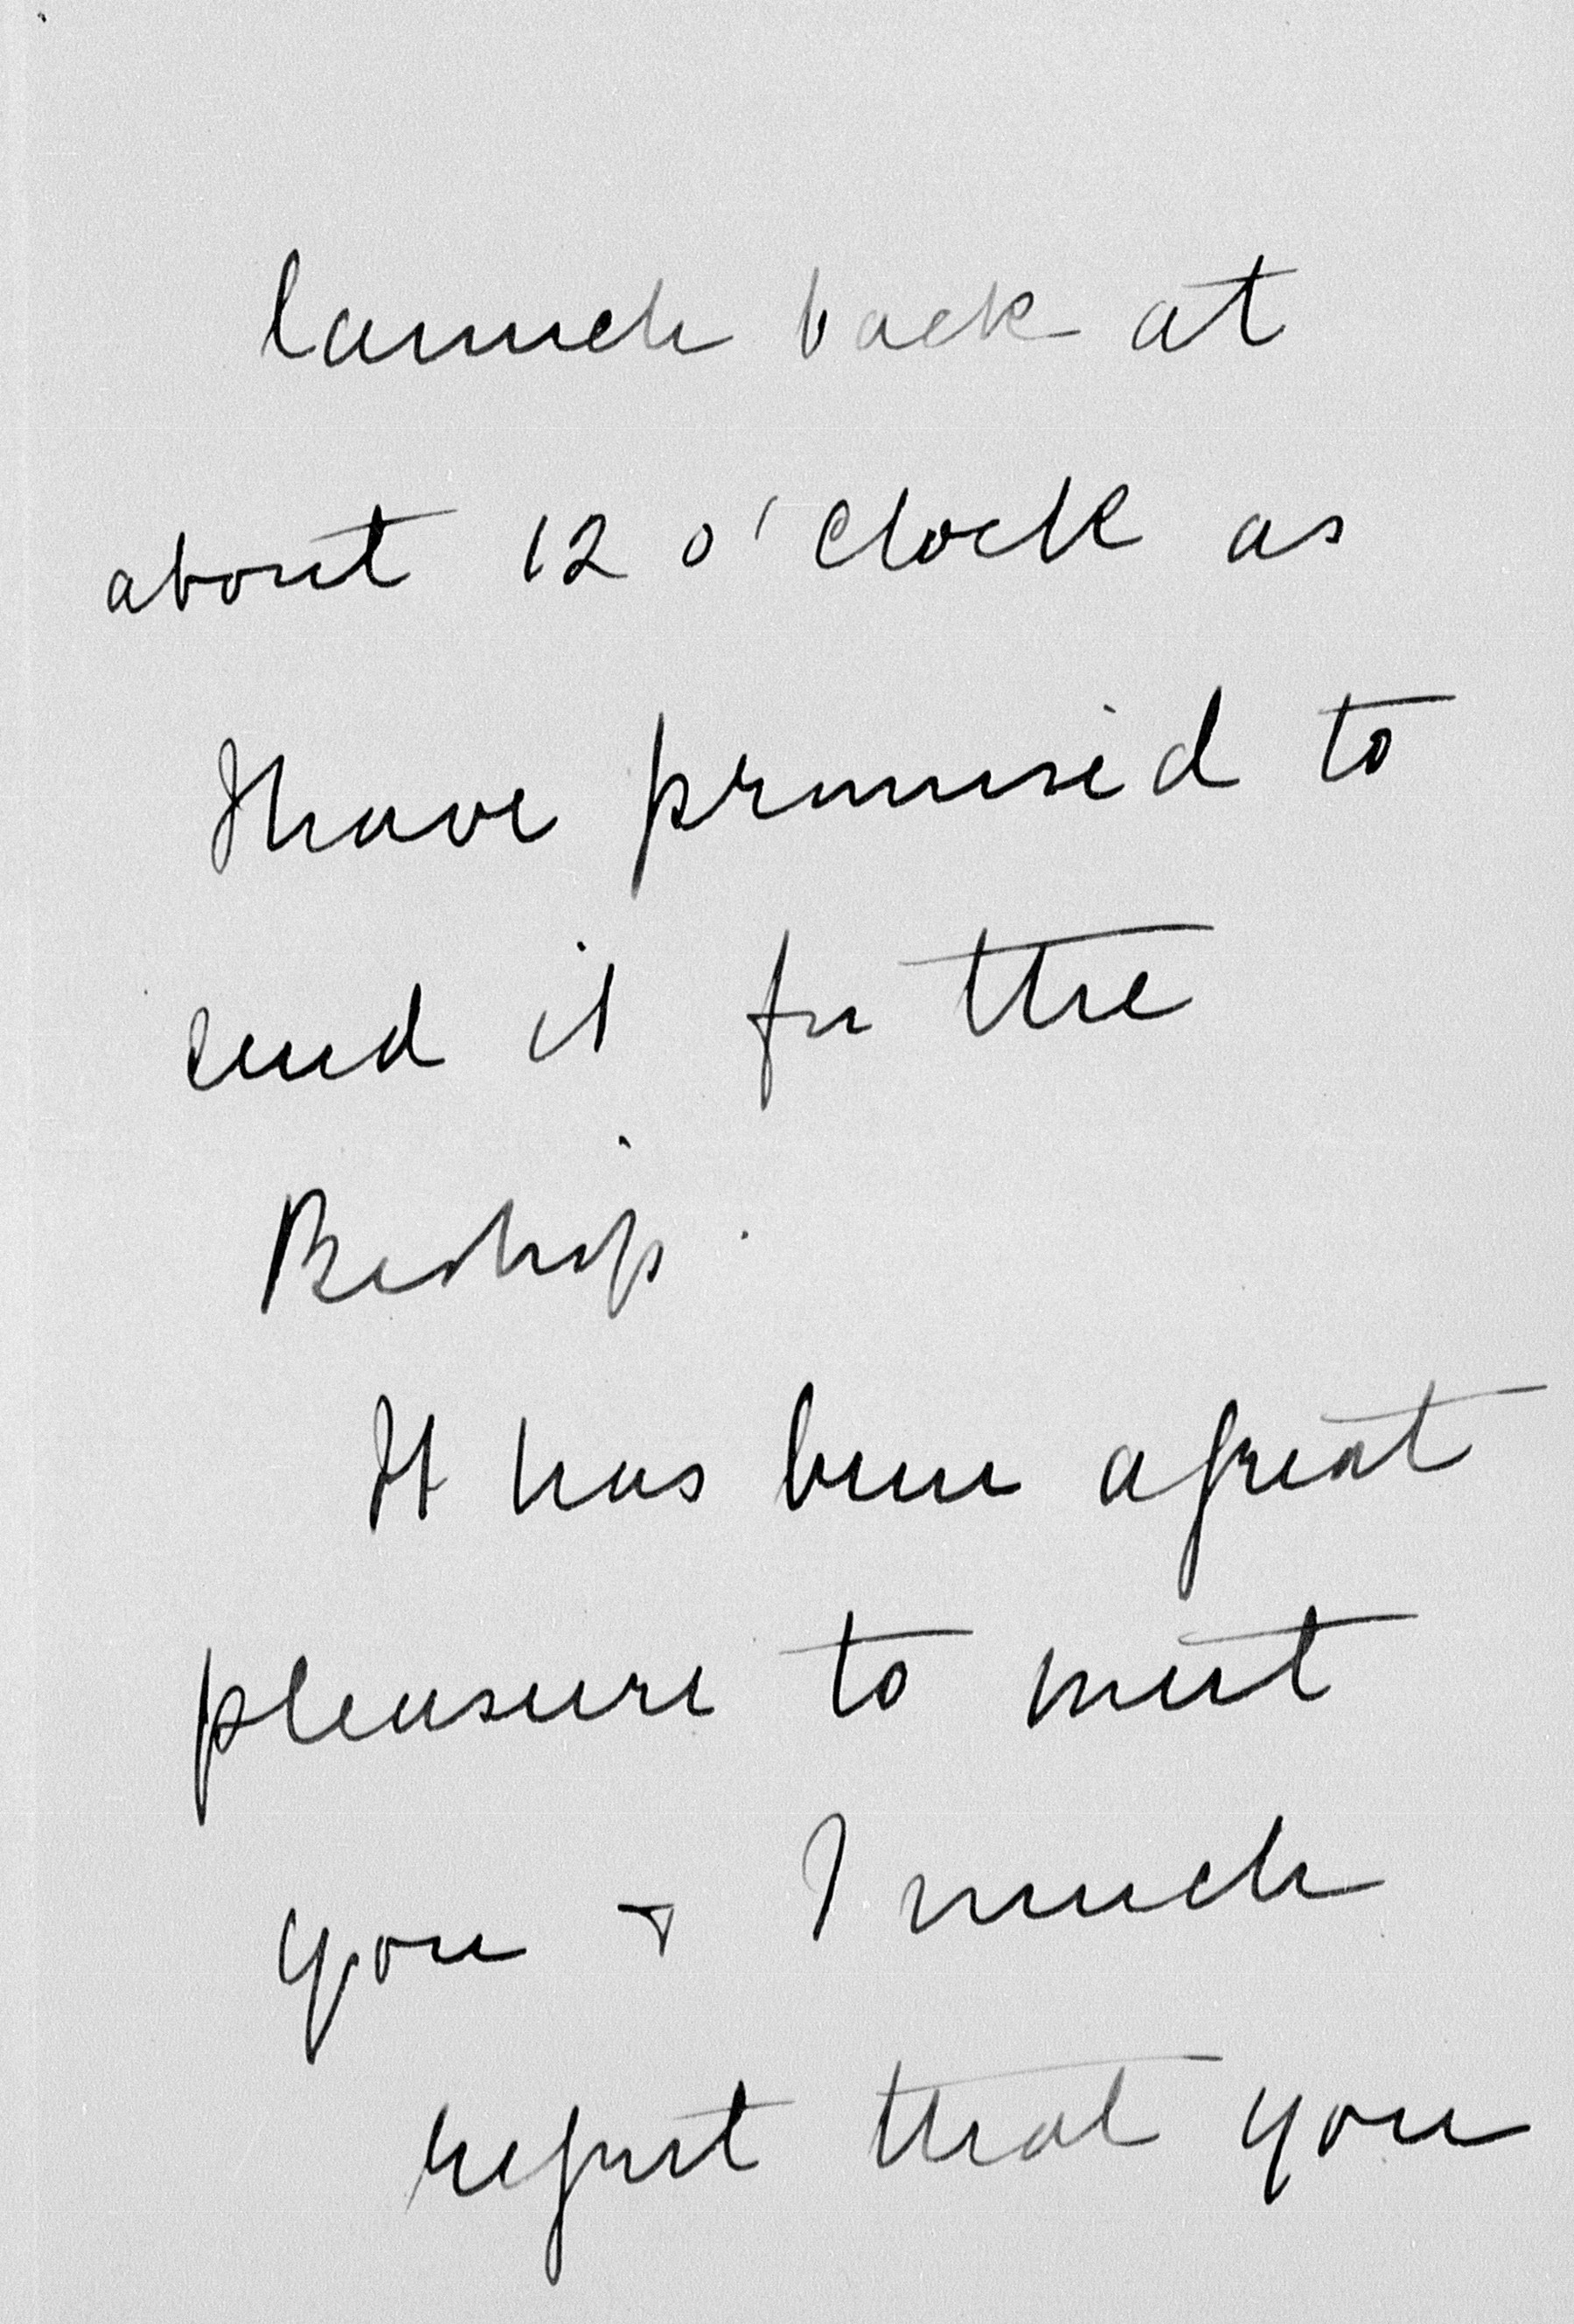 launch back at
about 12 o'clock as
I have promised to
send it for the
Bishop.
It has been a great
pleasure to meet
you & I much
regret that you